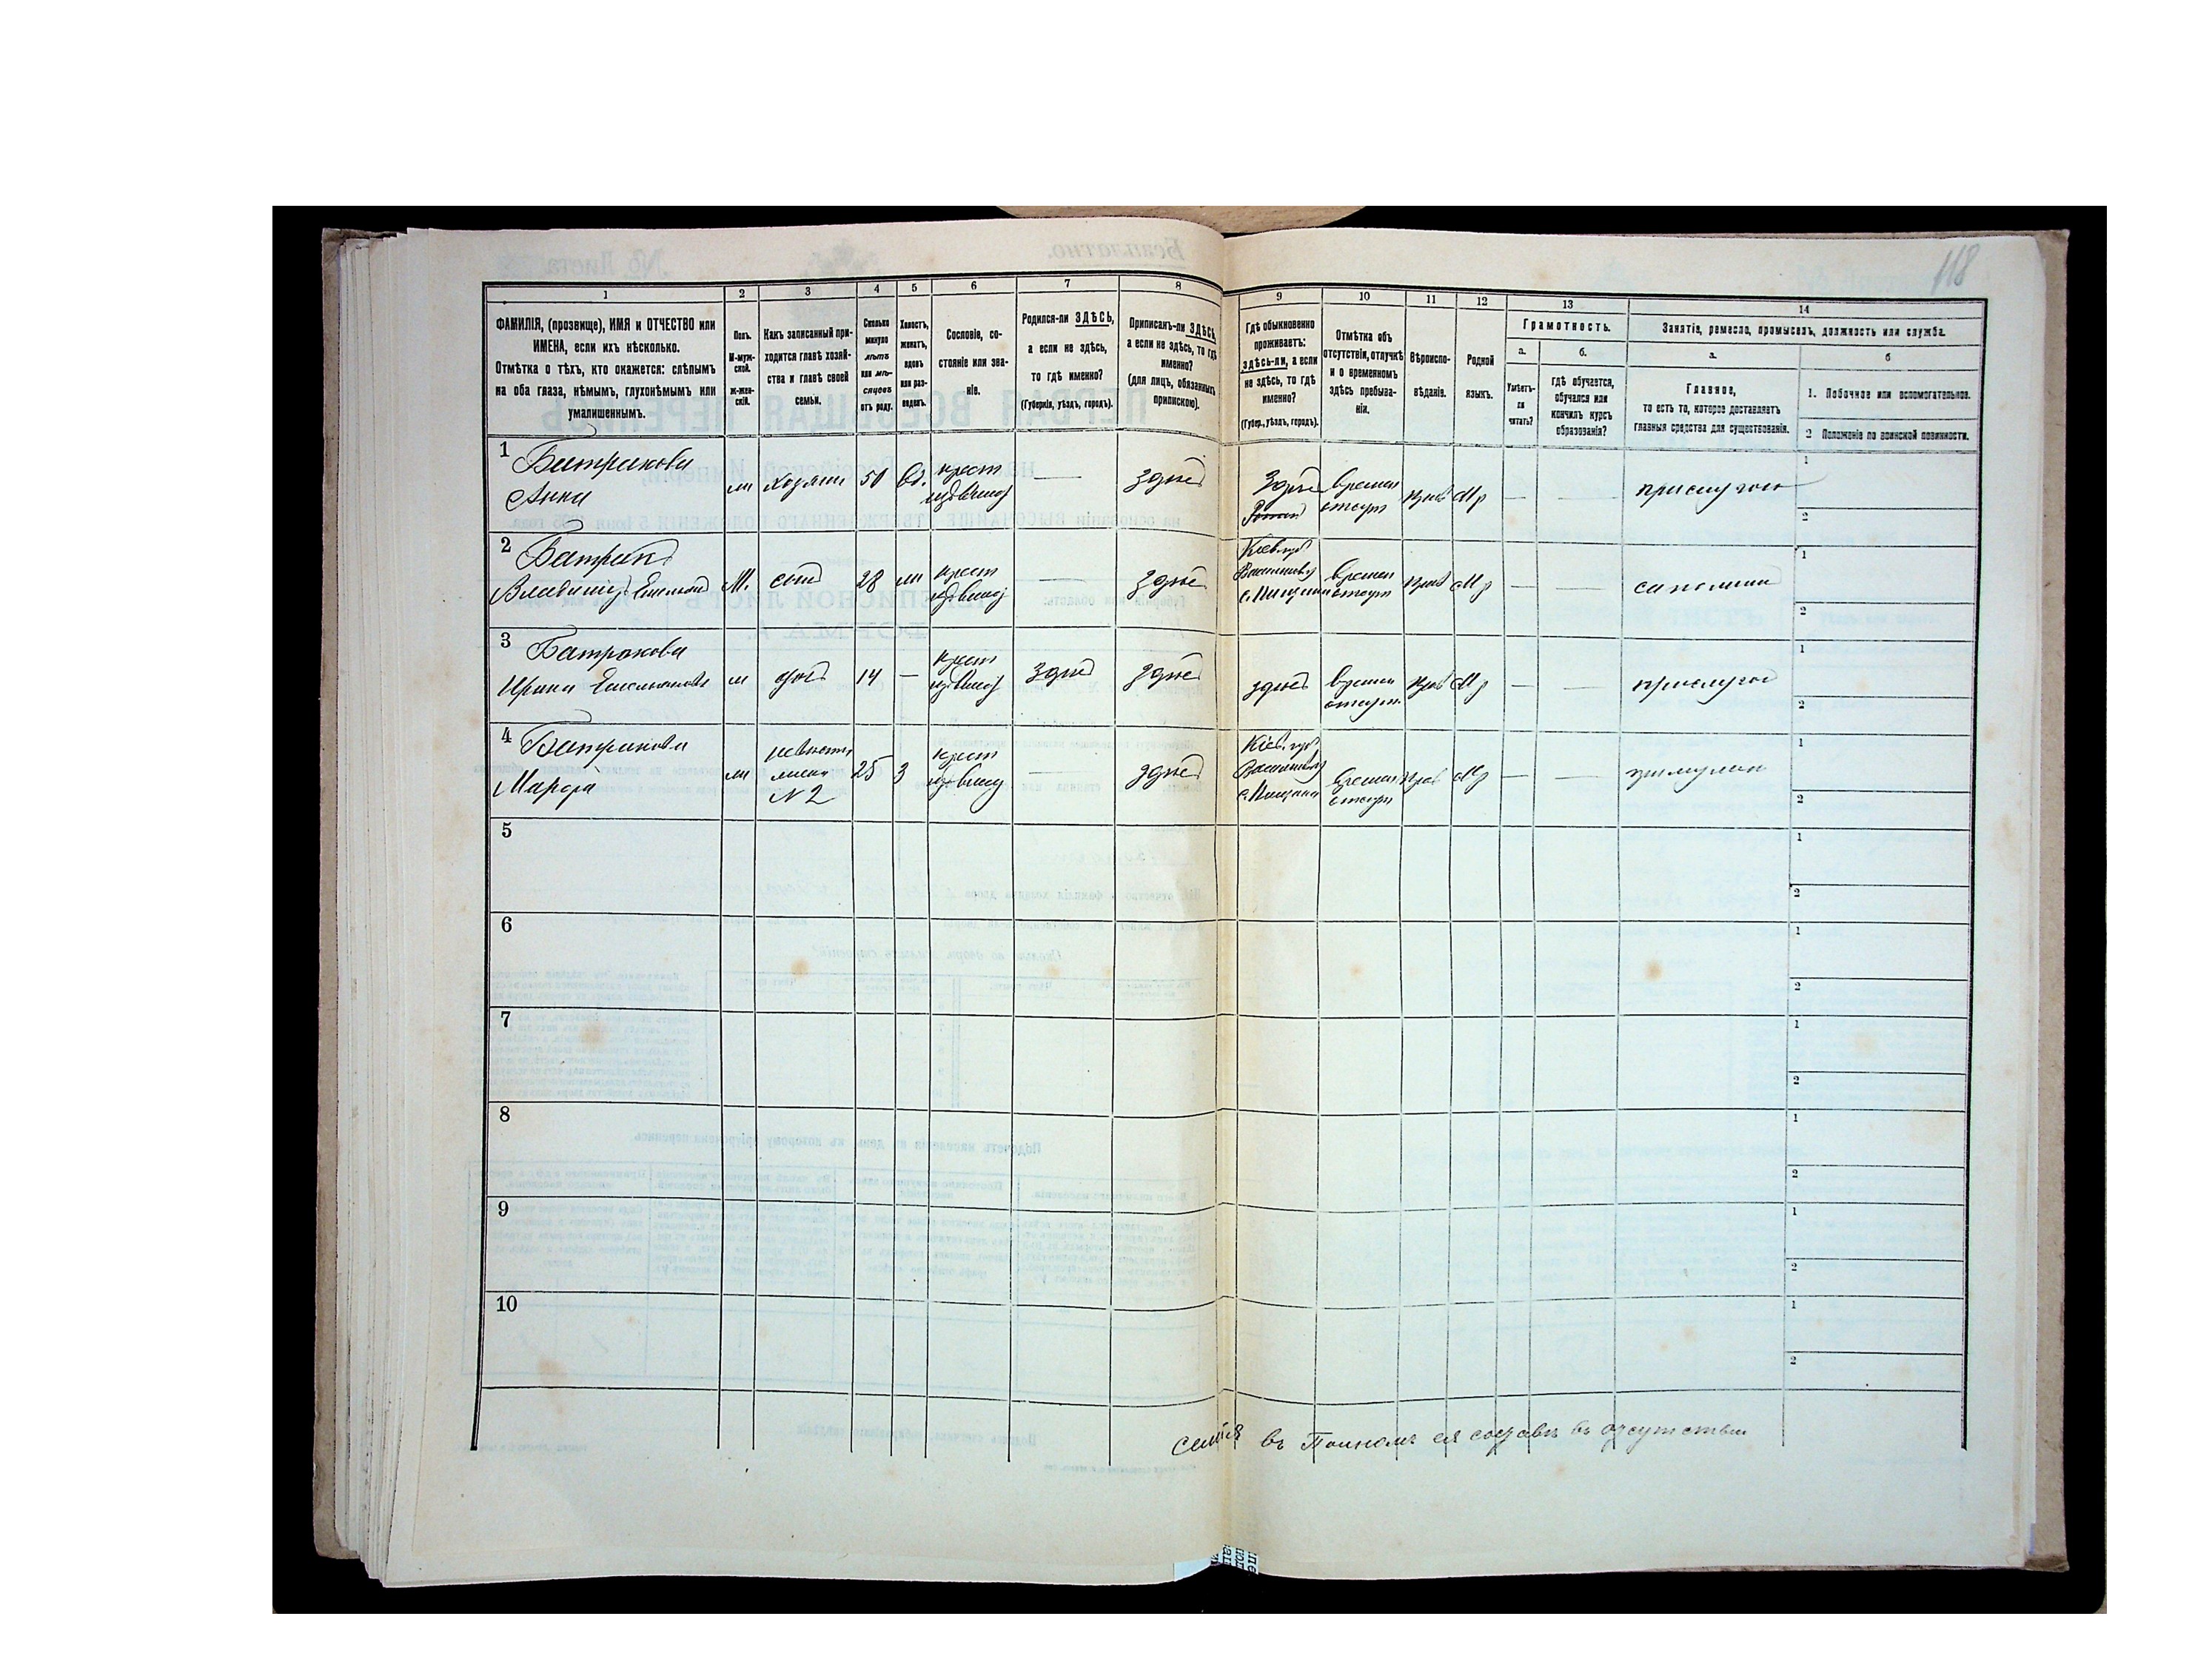 118
1
2
3
4
5
6
7
8
9
10
11
12
13
14
ФАМИЛІЯ, (прозвище), ИМЯ и ОТЧЕСТВО или
ИМЕНА, если ихъ нѣсколько.
Отмѣтка о тѣхъ, кто окажется: слѣпымъ
на оба глаза, нѣмымъ, глухонѣмымъ или
умалишеннымъ.
Полъ.
М-муж-
ской.
ж-жен-
скій.
Какъ записанный при-
ходится главѣ хозяй-
ства и главѣ своей
семьи.
Сколько
минуло
лѣтъ
или мѣ-
сяцевъ
отъ роду.
Холостъ,
женатъ,
вдовъ
или раз-
веденъ.
Сословіе, со-
стояніе или зва-
ніе.
Родился-ли ЗДѢСЬ,
а если не здѣсь,
то гдѣ именно?
(Губернія, уѣздъ, городъ).
Приписанъ-ли ЗДѢСЬ,
а если не здѣсь, то гдѣ
именно?
(для лицъ, обязанныхъ
припискою).
Гдѣ обыкновенно
проживаетъ:
здѣсь-ли, а если
не здѣсь, то гдѣ
именно?
(Губер., уѣздъ, городъ).
Отмѣтка объ
отсутствіи, отлучкѣ
и о временномъ
здѣсь пребыва-
ніи.
Вѣроиспо-
вѣданіе.
Родной
языкъ.
Грамотность.
а.
Умѣетъ-
ли
читать?
б.
гдѣ обучается,
обучался или
кончилъ курсъ
образованія?
Занятіе, ремесло, промыселъ, должность или служба.
а.
Главное,
то есть то, которое доставляетъ
главныя средства для существованія.
б
1. Побочное или вспомогательное.
2 Положеніе по воинской повинности.
1
Батракова
Анна
50
Вд.
крест
—
здѣсь
Здѣсь
времен
отсут
прав
Мр
—
—
прислугою
1
2
2
Батракъ
Владиміръ
М.
сынъ
28
крест
—
здѣсь
Кіев. губ
с. Пищики
времен
отсут
прав
Мр
—
—
1
2
3
Батракова
Ирина Емельянова
дочь
14
—
крест
здѣсь
здѣсь
здѣсь
времен
отсут.
прав
Мр
—
—
прислугою
1
2
4
Батракова
Марфа
невѣстка
жена
№ 2
25
З
крест
—
здѣсь
Кіев. губ
с. Пищики
времен
отсут
прав
Мр
—
—
1
2
5
1
2
6
1
2
7
1
2
8
1
2
9
1
2
10
1
2
семья въ Полномъ ея составѣ въ отсутствіи